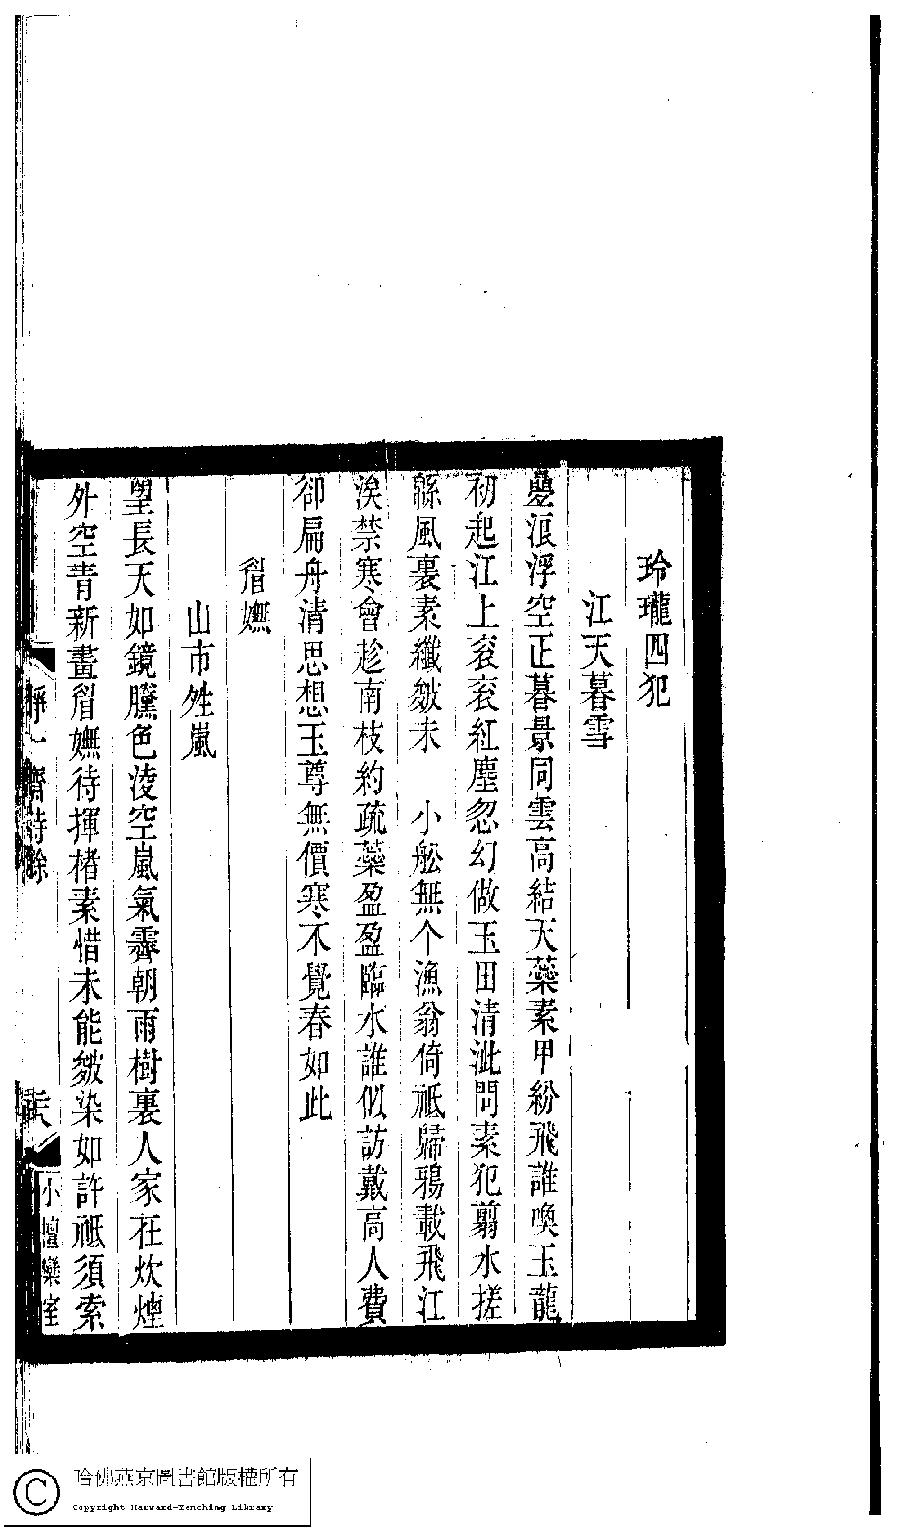 玲瓏四犯
江天暮雪
疊浪浮空正暮景同雲高結天蘂素甲紛飛誰喚玉龍
初起江上袞袞紅塵忽幻做玉田清泚問素犯翦水搓
緜風裏素纖皴未　小舩無个漁翁倚祗歸鴉載飛江
涘禁寒會趁南枝約疏蘂盈盈臨水誰似訪戴高人費
卻扁舟清思想玉尊無價寒不覺春如此
睂嫵
山市夝嵐
望長天如鏡曬色淩空嵐氣霽朝雨樹裏人家在炊煙
外空青新畫睂嫵待揮楮素惜未能皴染如許祗須索
靜一齋詩餘
小檀欒室
哈佛燕京圖書館版權所有
Copyright Harvard-Yenching Library